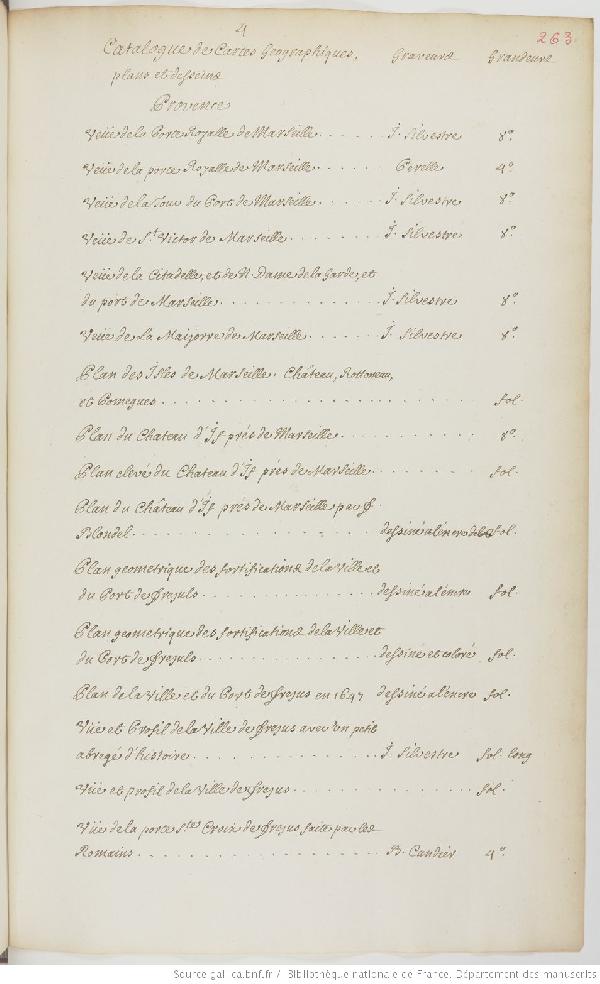 4
263
Catalogue de Cartes Geographiques, Graveurs Grandeurs
plans et desseins
Provence
Veüe de la Porte Royalle de Marseille . . . . . . J. Silvestre 8.º
Veüe de la porte Royalle de Marseille . . . . . . Perelle 4.º
Veüe de la Tour du Port de Marseille . . . . . . J. Silvestre 8.º
Veüe de S.t Victor de Marseille . . . . . . . . J. Silvestre 8.º
Veüe de la Citadelle, et de N. Dame de la Garde, et
du port de Marseille . . . . . . . . . . . . J. Silvestre 8.º
Veüe de La Majorre de Marseille . . . . . . J. Silvestre 8.º
Plan des Isles de Marseille. Château, Rottoneau,
et Pomegues . . . . . . . . . . . . . . . . . . . . . fol.
Plan du Chateau d'If prés de Marseille . . . . . . . . . . 8.º
Plan elevé du Chateau d'If prés de Marseille . . . . . . . . fol.
Plan du Château d'If prés de Marseille par
Blondel . . . . . . . . . . . . . . . . dessiné a lencre fol.
Plan geometrique des fortifications de la Ville et
du Port de Frejuls . . . . . . . . . . . dessiné a lencre fol.
Plan geometrique des fortifications de la Ville et
du Port de Frejuls . . . . . . . . . . . dessiné et coloré fol.
Plan de la Ville et du Port de Frejus en 1647 dessiné a lencre fol.
Vüe et Profil de la Ville de Frejus avec un petit
abregé d'histoire . . . . . . . . . . . . J. Silvestre fol. long
Vüe et profil de la Ville de Frejus . . . . . . . . . . . . fol.
Vüe de la porte S.te Croix de Frejus faite par les
Romains . . . . . . . . . . . . . . . . B. Candier 4.º
Source gallica.bnf.fr / Bibliothèque nationale de France. Département des manuscrits